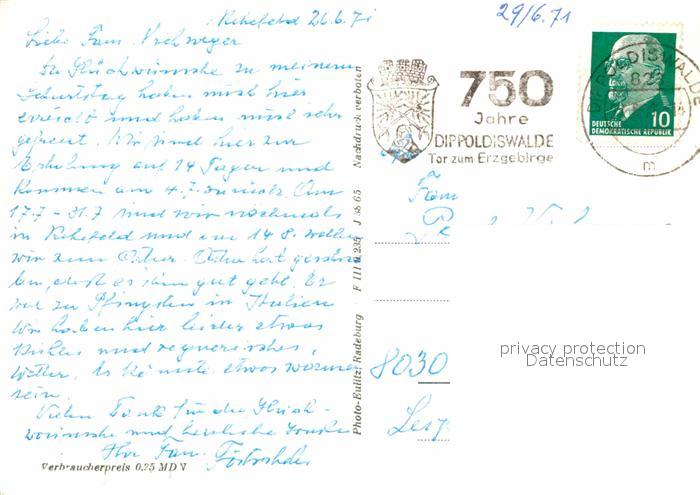 Rehefeld 26.6.71
29/6.71
Liebe Fam.
Die Glückwünsche zu meinem
Geburtstag haben mich hier
erreicht und haben mich sehr
gefreut. Wir sind hier zur
Erholung auf 14 Tage und
kommen am 4.7. zurück. Am
17.7 - 31.7 sind wir nochmals
in Rehefeld und am 14 8. wollen
wir zum
gut geht. Er
war zu Pfingsten in Italien
Wir haben hier leider etwas
kühles und regnerisches
Wetter. Es könnte etwas wärmer
sein.
Vielen Dank für die Glück-
wünsche und herzliche Grüße
Ihre Fam.
Verbraucherpreis 0.25 MDN
Photo-Eulitz, Radeburg F III 9 235 J 38 65 Nachdruck verboten
750
Jahre
DIPPOLDISWALDE
Tor zum Erzgebirge
DIPPOLDISWALDE
m
10
DEUTSCHE
DEMOKRATISCHE REPUBLIK
Fam
8030
privacy protection
Datenschutz